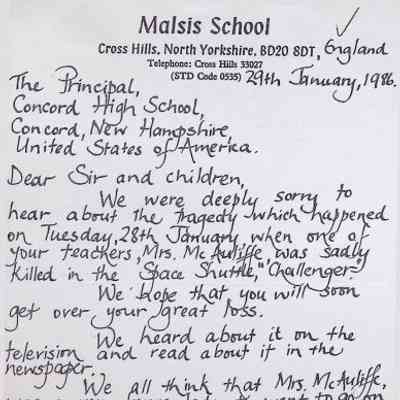 Malsis School
Cross Hills, North Yorkshire, BD20 8DT, England
Telephone: Cross Hills 33027
(STD Code 0535) 29th January, 1986.
The Principal,
Concord High School,
Concord, New Hampshire,
United States of America.
Dear Sir and children,
We were deeply sorry to
hear about the tragedy which happened
on Tuesday, 28th January when one of
your teachers, Mrs. McAuliffe, was sadly
killed in the Space Shuttle, "Challenger"
We hope that you will soon
get over your great loss.
We heard about it on the
television and read about it in the
newspaper.
We all think that Mrs. McAuliffe,
to go on